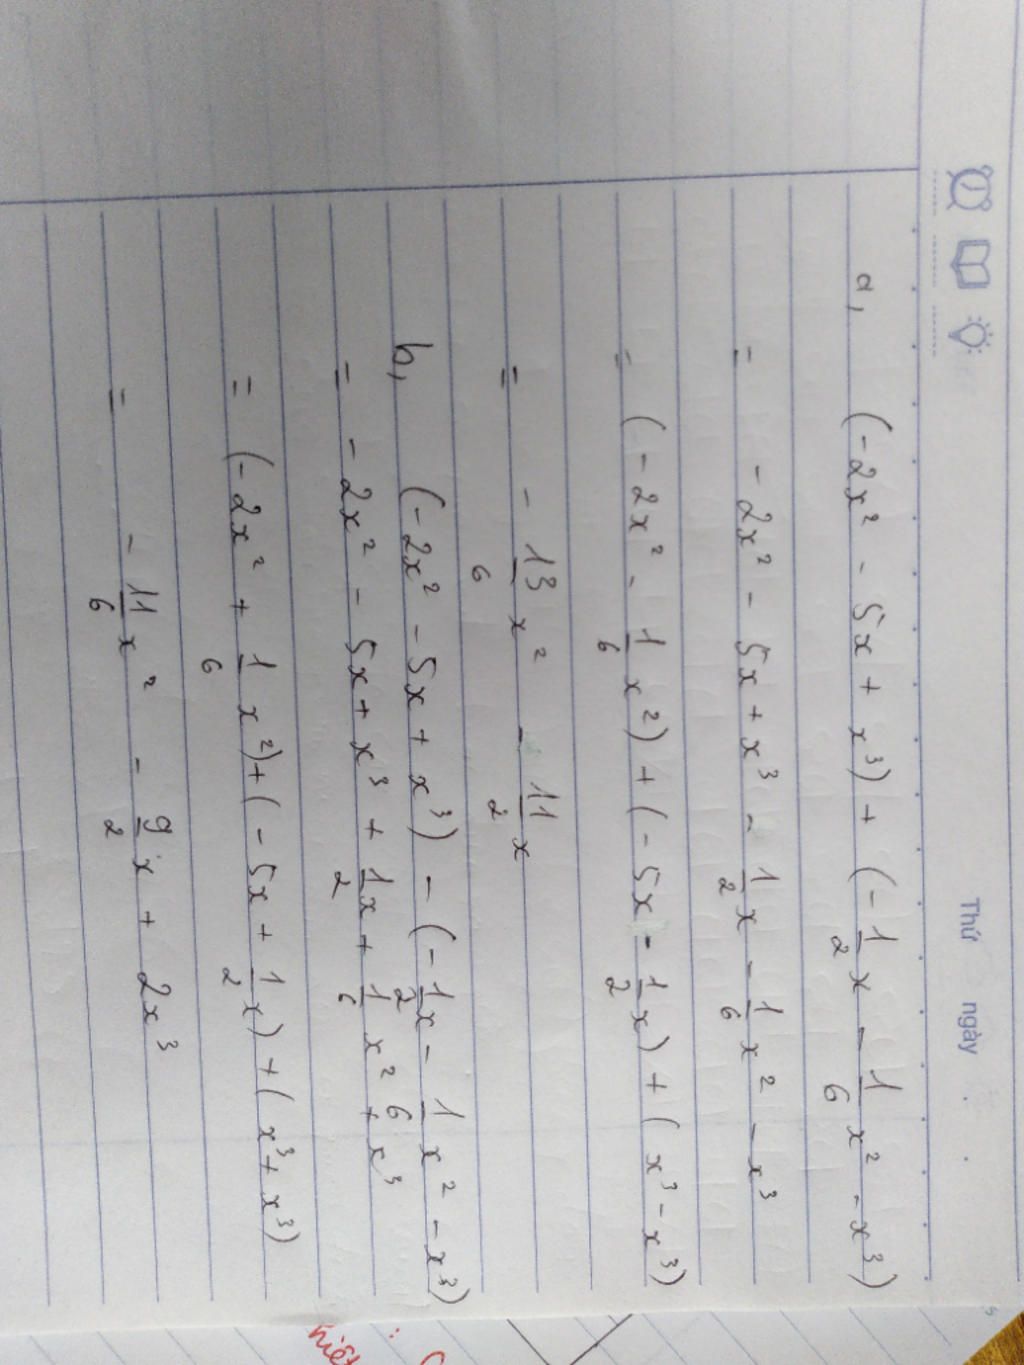 Thứ ngày . .
a, (-2x² - 5x + x³) + (-1/2 x - 1/6 x² - x³)
= -2x² - 5x + x³ - 1/2 x - 1/6 x² - x³
= (-2x² - 1/6 x²) + (-5x - 1/2 x) + (x³ - x³)
= -13/6 x² - 11/2 x
b, (-2x² - 5x + x³) - (-1/2 x - 1/6 x² - x³)
= -2x² - 5x + x³ + 1/2 x + 1/6 x² + x³
= (-2x² + 1/6 x²) + (-5x + 1/2 x) + (x³ + x³)
= -11/6 x² - 9/2 x + 2x³